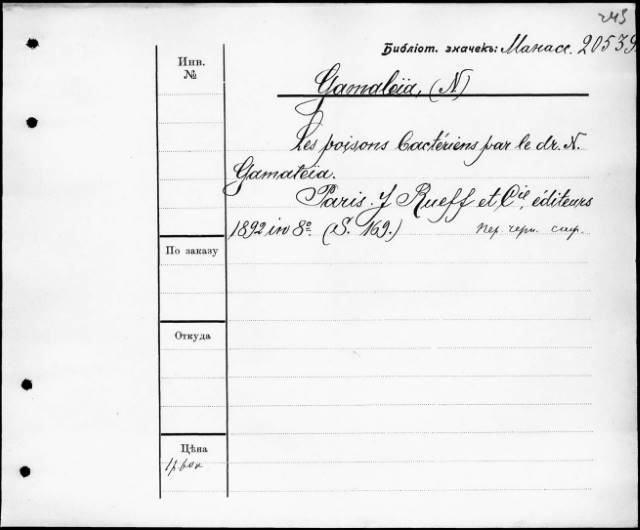 243
Библіот. значекъ: Манасс. 20539
Инв.
№
Gamaleïa, (N)
Les poisons bactériens par le dr. N.
Gamaleia.
Paris. J Rueff et Cie, éditeurs
1892 in 8º. (S. 169.)
пер. черн. саф.
По заказу
Откуда
Цѣна
1 р.